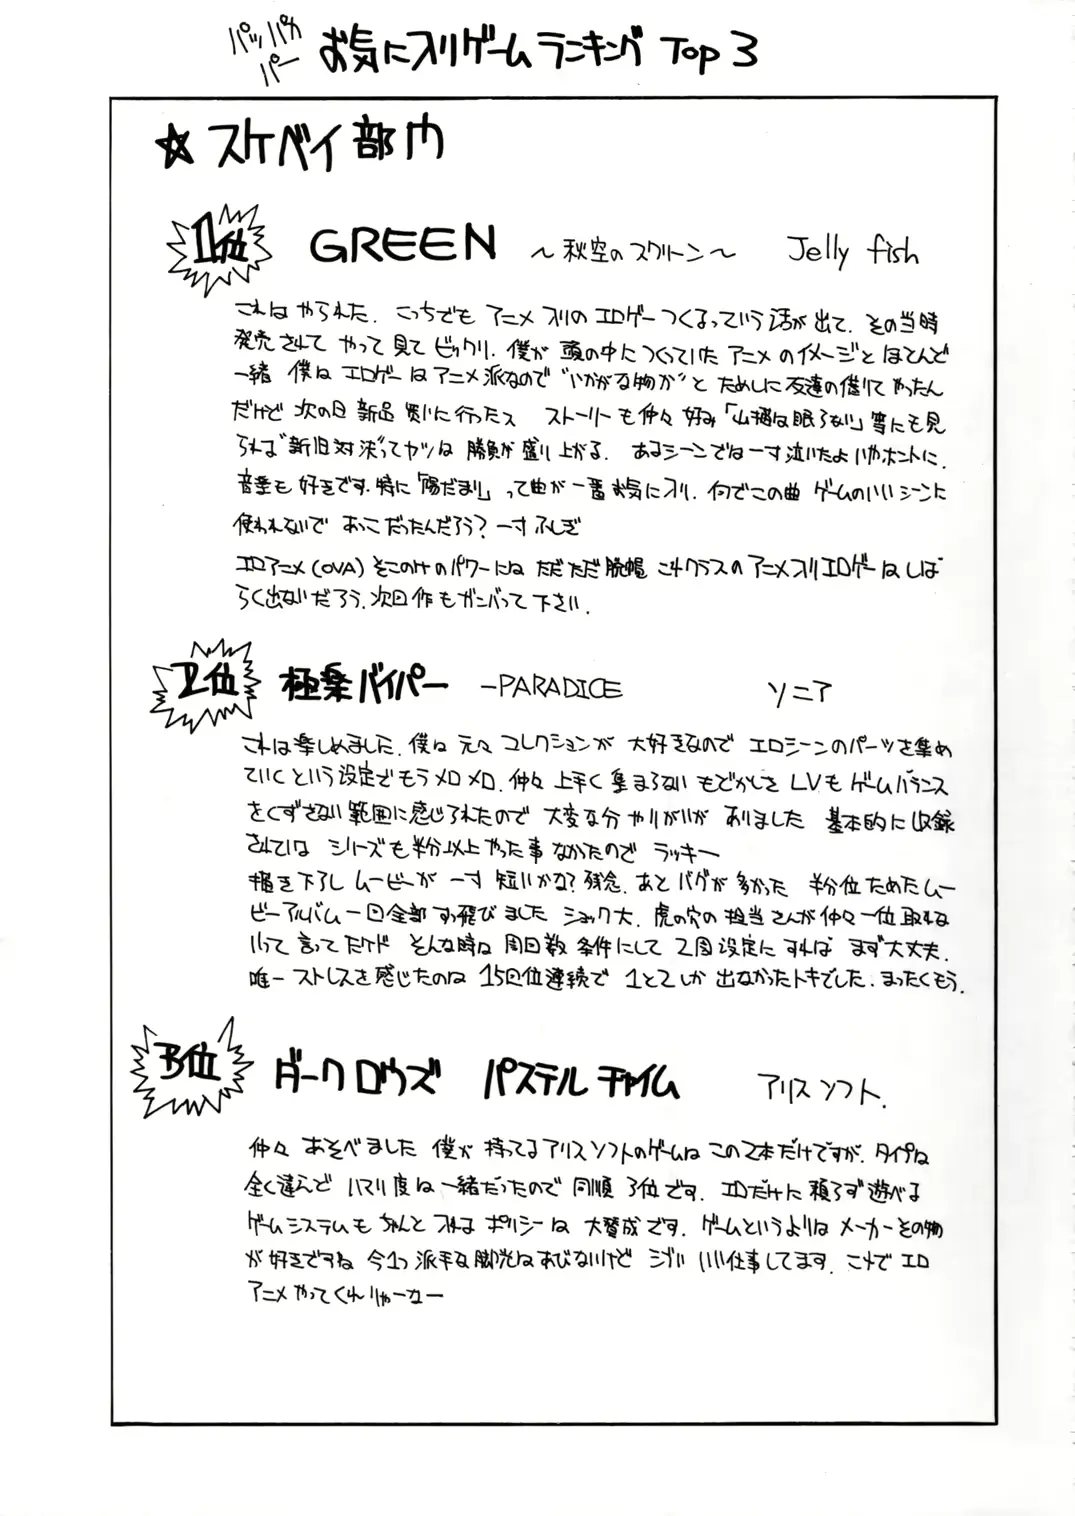 パッパカパー お気に入りゲームランキング Top 3
☆ スケベイ部門
1位 GREEN ～秋空のスクリーン～ Jelly fish
これは やられた. こっちでも アニメ入りの エロゲーつくるっていう話が出て. その当時
発売されて やって見て ビックリ. 僕が 頭の中につくっていた アニメのイメージと ほとんど
一緒 僕は エロゲーは アニメ派なので "いかがな物か"と ためしに友達の借りて やったん
だけど 次の日 新品 買いに行ったス ストーリーも仲々 好み 「山猫は眠らない」等にも見
られる"新旧対決"ってヤツは 勝負が盛り上がる. あるシーンでは一寸泣いたよ いやホントに.
音楽も 好きです. 特に「陽だまり」って曲が一番お気に入り. 何でこの曲 ゲームのいいシーンに
使われないで おっこだったんだろう? 一寸ふしぎ
エロアニメ(OVA) そこのけのパワーには ただただ脱帽 こんクラスの アニメ入りエロゲーは しば
らく出ないだろう. 次回作もガンバって下さい.
2位 極楽バイパー -PARADICE ソニア
これは楽しめました. 僕は 元々 コレクションが 大好きなので エロシーンのパーツを集め
ていくという設定で もうメロメロ. 仲々 上手く 集まらない もどかしさ LVも ゲームバランス
をくずさない範囲に感じられたので 大変な分 やりがいが ありました 基本的に収録
されているは シリーズも半分以上やった事なかったので ラッキー
描き下ろし ムービーが 一寸 短いかな? 残念. あと バグが 多かった 半分位ためたムー
ビーアルバム一回全部すっ飛びました ショック大. 虎の穴の担当さんが仲々一位取れな
いって 言ってたけド そんな時は 周回数 条件にして 2周設定に すれば まず大丈夫.
唯一 ストレスを感じたのは 15回位連続で 1と2しか 出なかったトキでした. まったくもう.
3位 ダークロウズ パステルチャイム アリスソフト.
仲々 あそべました 僕が 持ってる アリスソフトのゲームは この2本だけですが. タイプは
全く違んど ハマリ度は一緒だったので 同順 3位です. エロだけに頼らず遊べる
ゲームシステムも ちゃんと 入れる ポリシーは 大賛成です. ゲームというよりは メーカーその物
が好きですね 今1つ派手な脚光はあびないけど シブい いい仕事してます. これで エロ
アニメやってくれりゃーなー